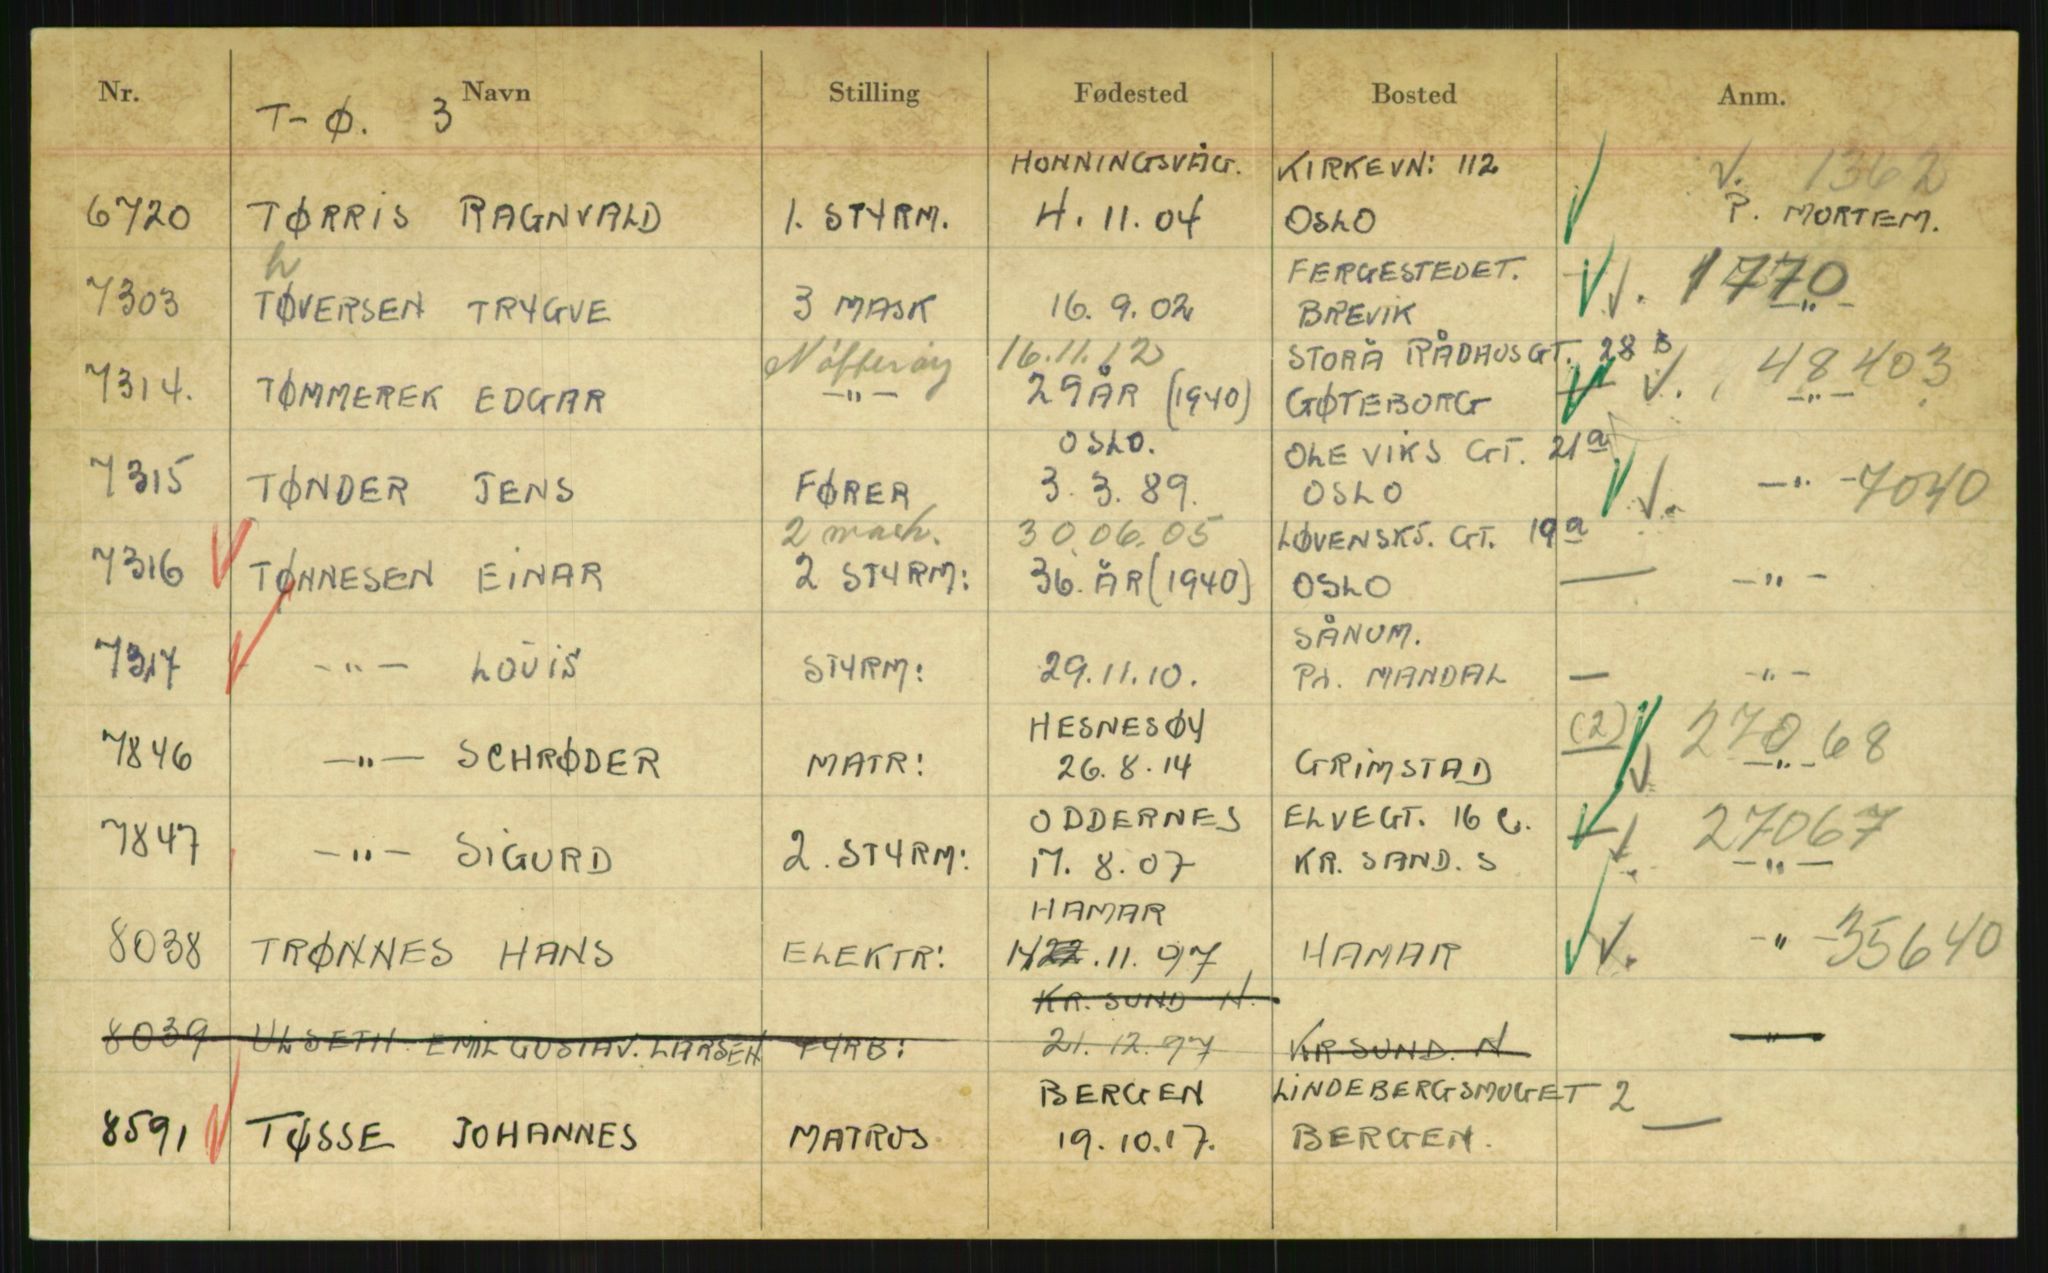 Nr. Navn Stilling Fødested Bosted Anm.
T-Ø. 3
HONNINGSVÅG. KIRKEVN: 112 √. 1362
6720 TØRRIS RAGNVALD 1. STYRM. 4.11.04 OSLO P. MORTEM.
h FERGESTEDET.
7303 TØVERSEN TRYGVE 3 MASK 16.9.02 BREVIK √. 1770 —"—
Nøtterøy 16.11.12 STORA RÅDHUSGT. 28 B
7314. TØMMEREK EDGAR —"— 29 ÅR (1940) GØTEBORG √. 48403 —"—
OSLO. OLE VIKS GT. 21a
7315 TØNDER JENS FØRER 3.3.89. OSLO √. —"— 7040
2 mask. 30.06.05 LØVENSKS. GT. 19a
7316 TØNNESEN EINAR 2 STYRM: 36. ÅR (1940) OSLO — —"—
SÅNUM.
7317 —"— LOUIS STYRM: 29.11.10. Pr. MANDAL — —"—
HESNESØY (2) 27068
7846 —"— SCHRØDER MATR: 26.8.14 GRIMSTAD √ —"—
ODDERNES ELVEGT. 16 C. 27067
7847 —"— SIGURD 2. STYRM: 17.8.07 KR. SAND. S √ —"—
HAMAR
8038 TRØNNES HANS ELEKTR: .11.97 HAMAR √. —"— 35640
KR. SUND N.
8039 ULSETH EMIL GUSTAV. LARSEN FYRB: 21.12.97 KR SUND. N —"—
BERGEN LINDEBERGSMUGET 2
8591 TØSSE JOHANNES MATROS 19.10.17. BERGEN. —